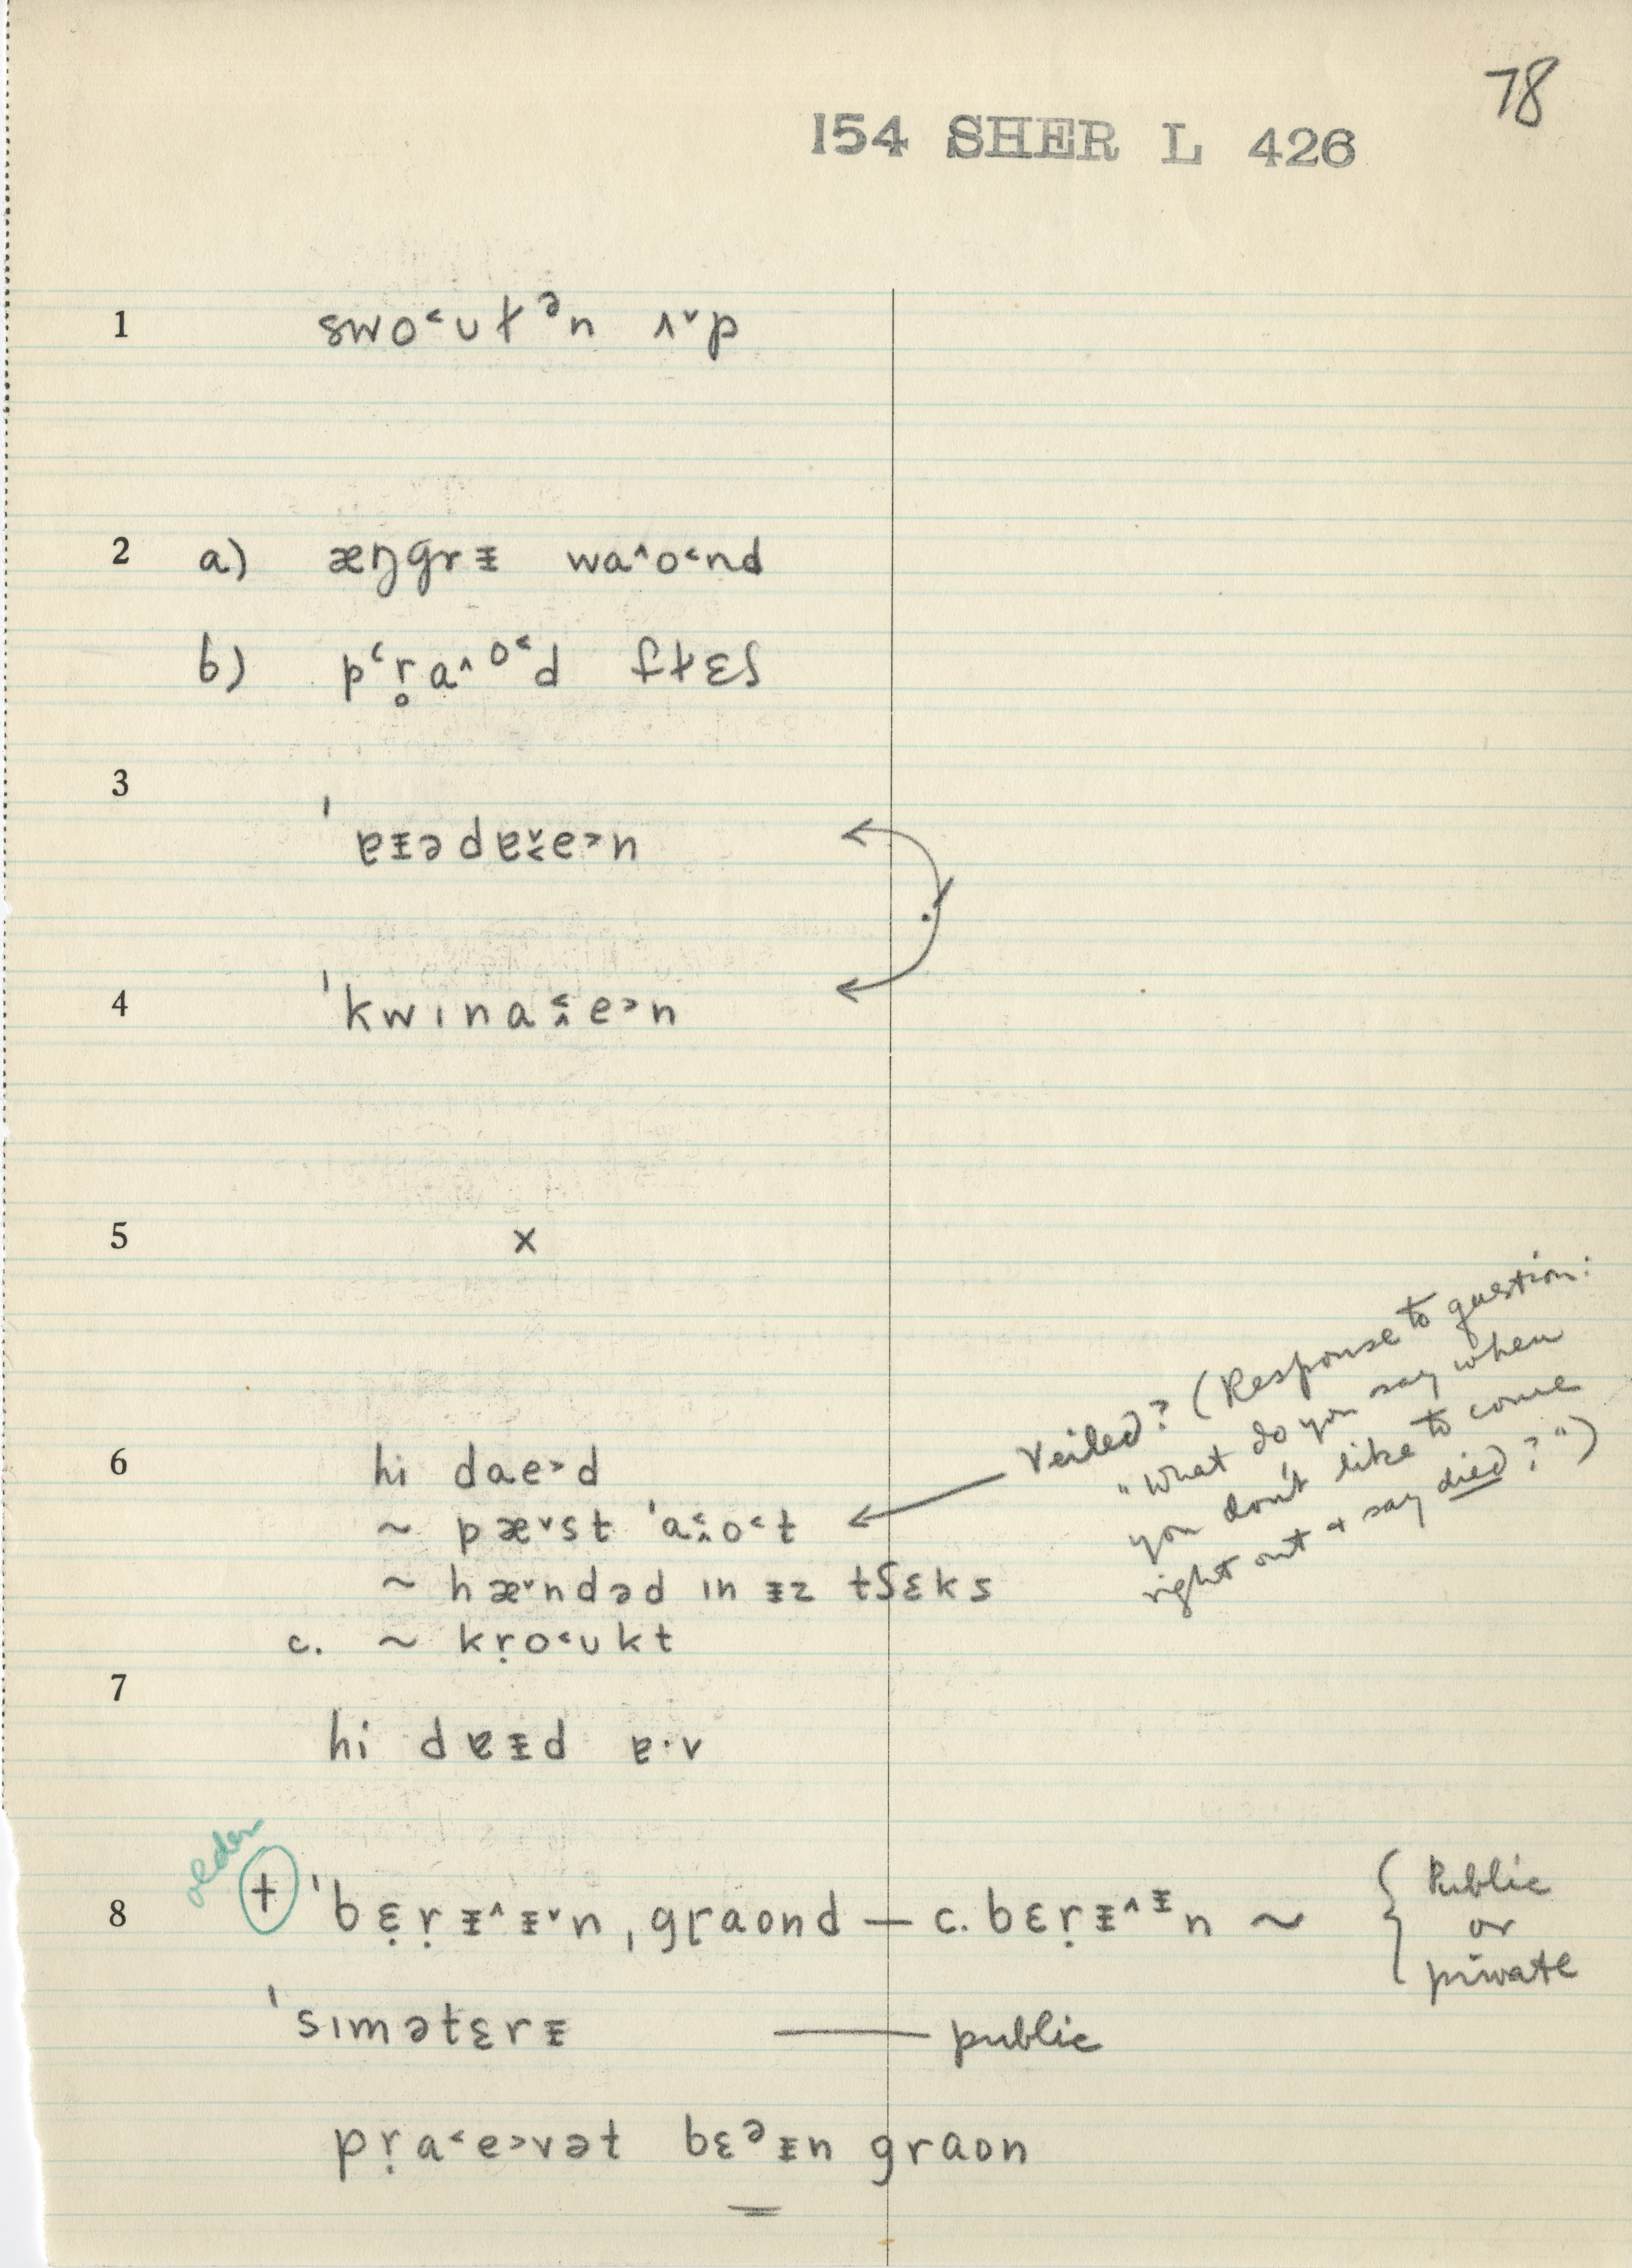 78
154 SHER L 426
1 swo˂ut̸ᵊn ʌ˅p
2 a) æŋgrɪ̵ wa˄o˂nd
b) pʻr̥a˄ᵒ˂d flɛʃ
3 ˈɐɪ̵ədɐ̬˂e˃n
4 ˈkwɪna˂̭e˃n
5 x
6 hi dae˃d
~ pæ˅st ˈa˂̭o˂t
~ hæ˅ndəd ɪn ɪ̵z tʃɛks
c. ~ kṛo˂ukt
Veiled? (Response to question:
"What do you say when
you don't like to come
right out + say died?")
7 hi dɐɪ̵d ɐ·v
older
8 + ˈbɛ̣ṛɪ̵˄ɪ̵˅n ˌgraond — c. bɛṛɪ̵˄ᶧn ~ { Public
or
private
ˈsɪmətɛrɪ̵ — public
pṛa˂e˃vət bɛᵊɪ̵n graon